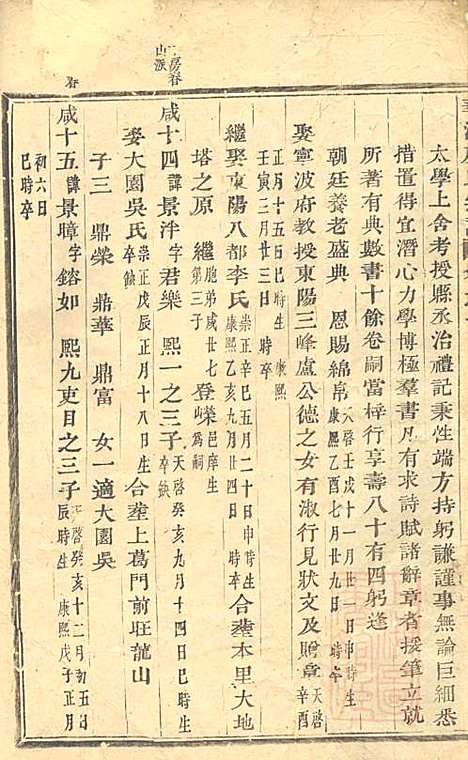 太學上舍考授縣丞治禮記秉性端方持躬謙謹事無論巨細悉
措置得宜潛心力學博極羣書凡有求詩賦諸辭章者援筆立就
所著有典數書十餘卷嗣當梓行享壽八十有四躬逢
朝廷養老盛典 恩賜綿帛 天啓壬戌十一月廿一日申時生 康熙乙酉七月廿九日 時卒
娶寧波府教授東陽三峰盧公德之女有淑行見狀文及贈章 天啓辛酉
正月十五日巳時生 康熙
壬寅三月廿三日 時卒
繼娶東陽八都李氏 崇正辛巳五月二十日申時生 康熙乙亥九月廿四日 時卒 合塟本里大地
塔之原 繼 胞弟咸廿七 第三子 登榮 邑庠生 為祠
二房春
山派
咸十四 諱 景泮 字 君樂 熙一之三子 天啓癸亥九月十四日巳時生 卒缺
娶大園吳氏 崇正戊辰正月十八日生 卒缺 合塟上葛門前旺龍山
子三 鼎榮 鼎華 鼎富 女一適大園吳
春
咸十五 諱 景暲 字 鎔如 熙九吏目之三子 天啓癸亥十二月初五日 辰時生 康熙戊子正月
初六日
巳時卒